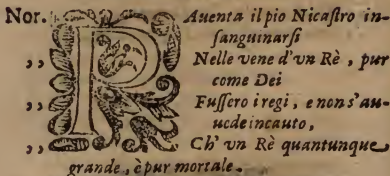 Nor. PAuenta il pio Nicaſtro in-
ſanguinarſi
,, Nelle vene d'vn Rè, pur
come Dei
,, Fuſſero i regi, e non s'au-
uede incauto,
,, Ch' vn Rè quantunque
grande, è pur mortale.